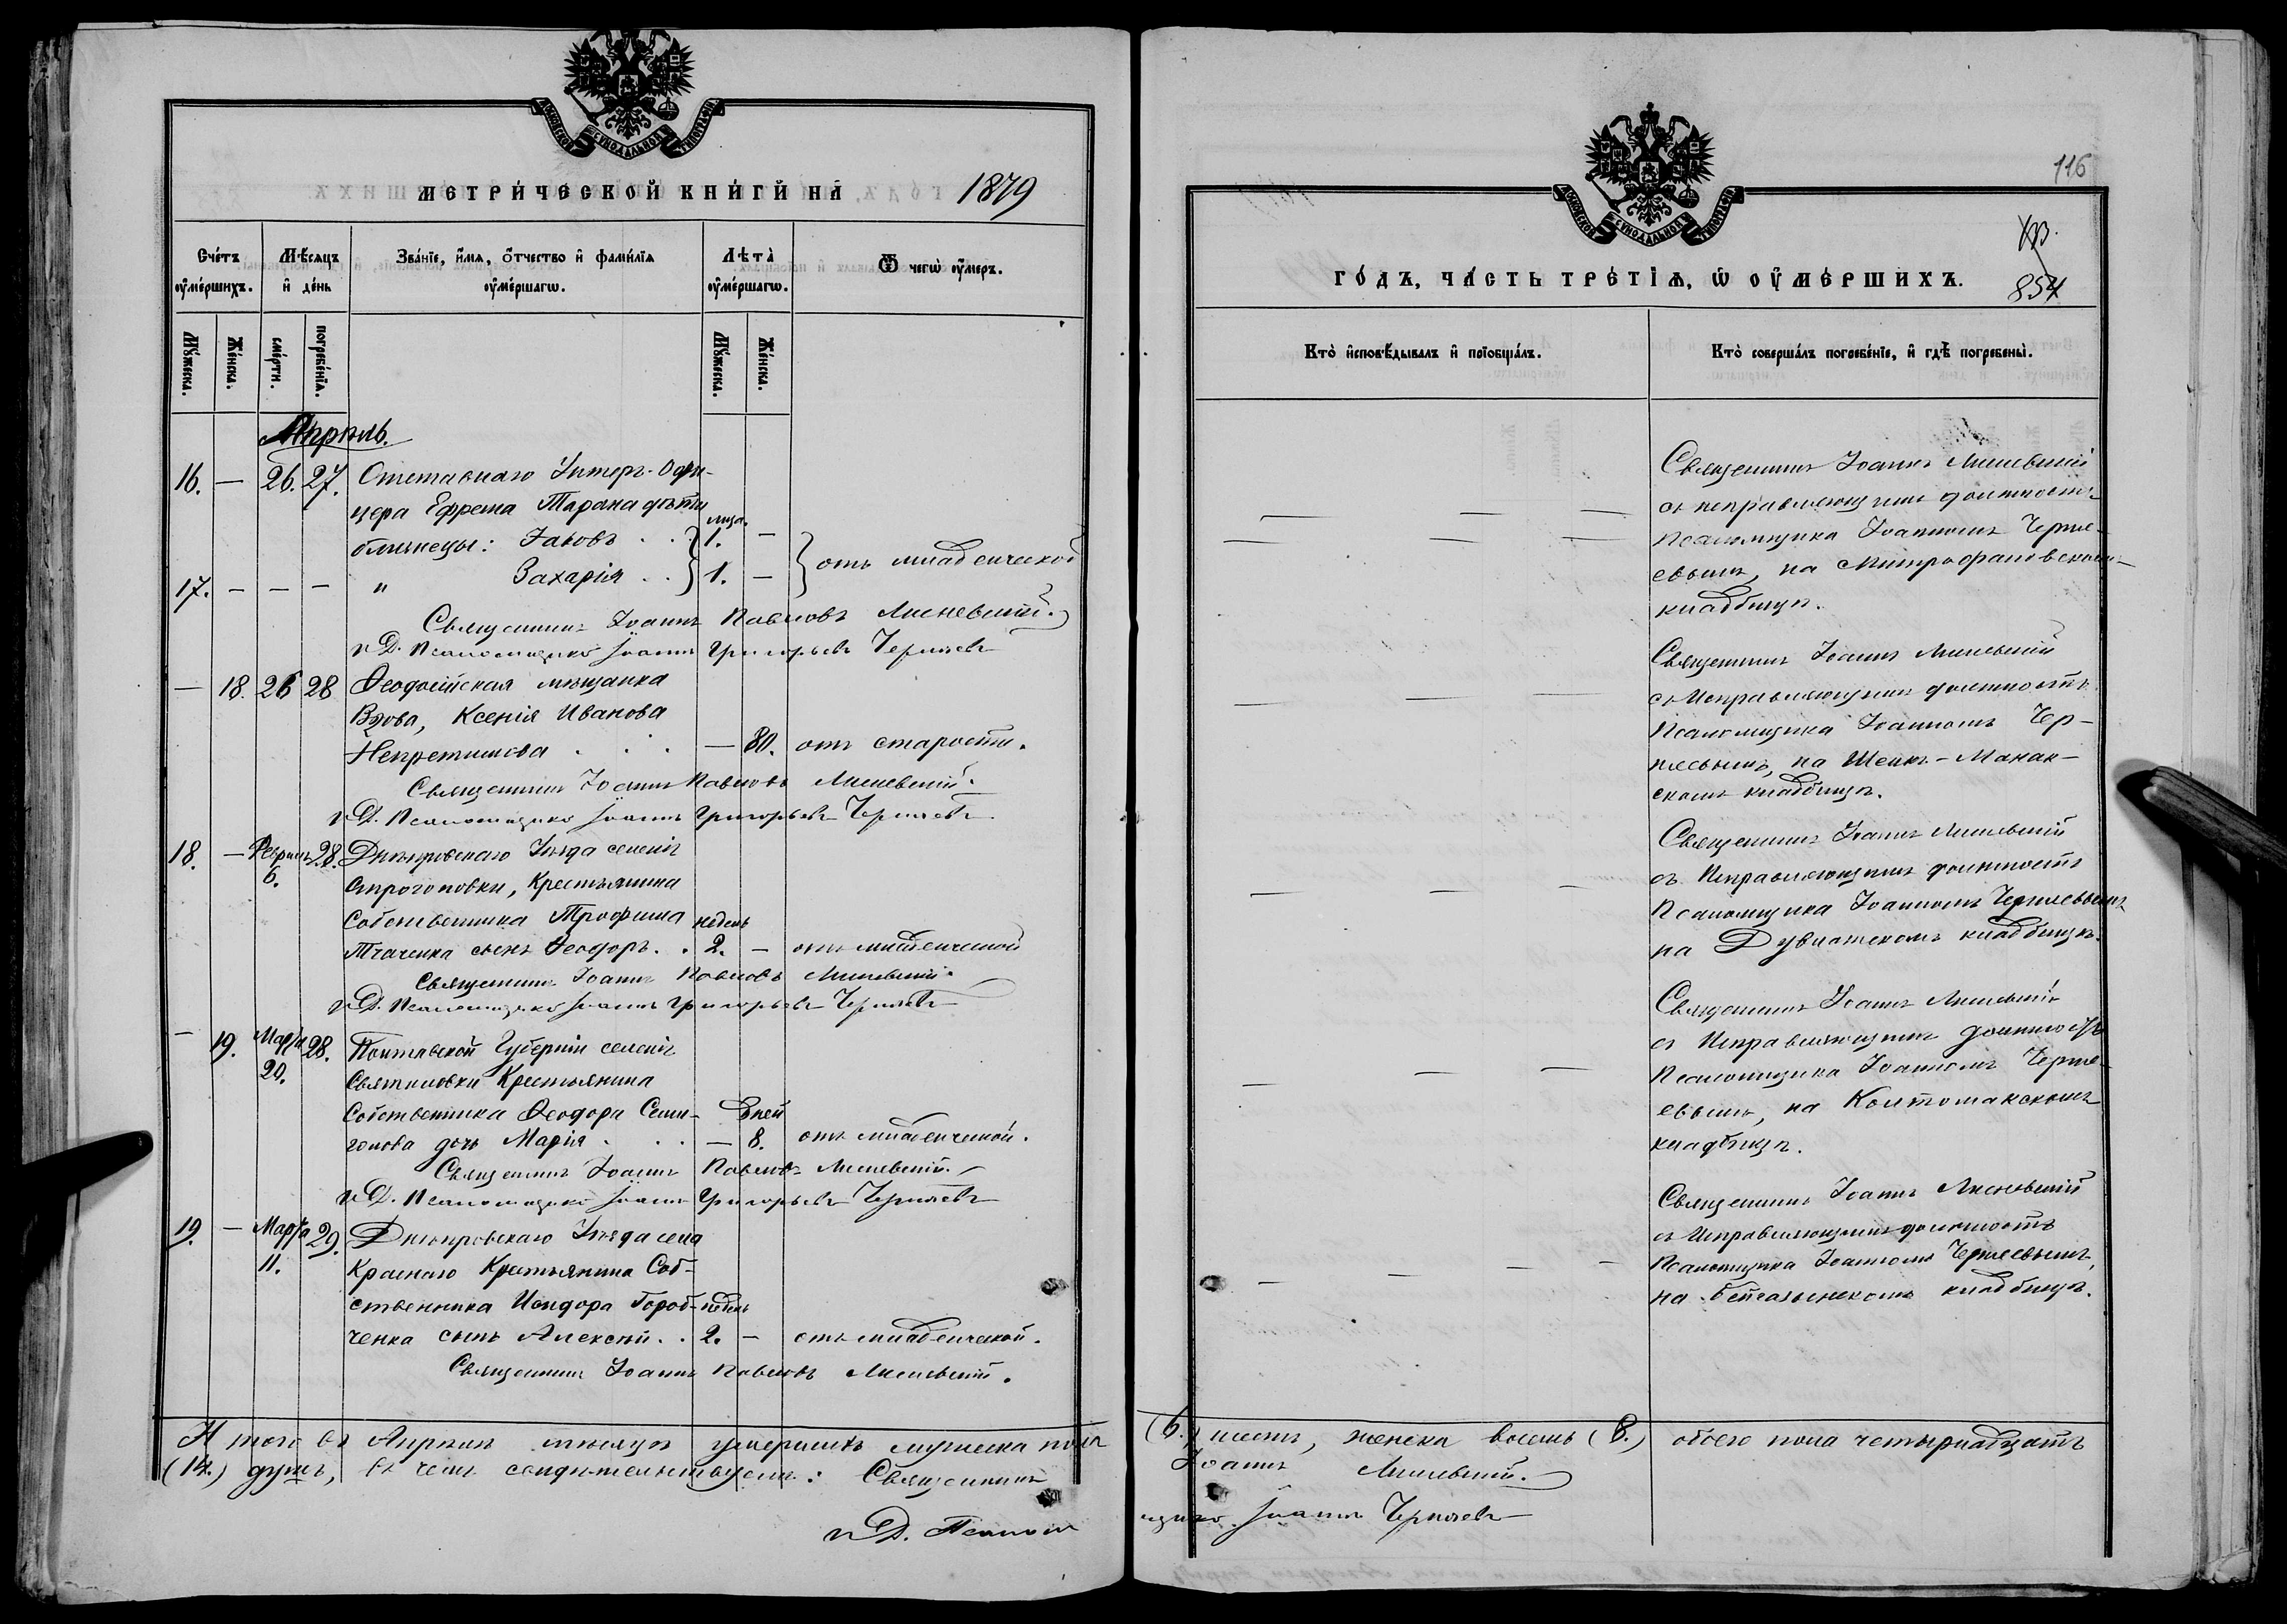 МОСКОВСКОЙ СУНОДАЛЬНОЙ ТИПОГРАФІИ
МЕТРИ́ЧЕСКОЙ КНИ́ГИ НА 1879
Сче́тъ оуме́ршихъ.
Мѣ́сяцъ и де́нь
Зва́нїе, и́мя, о́тчество и фами́лїя оуме́ршагѡ.
Лѣта̀ оуме́ршагѡ.
Ѿ чегѡ̀ оу́меръ.
Мꙋ́жеска.
Же́нска.
сме́рти.
погребе́нїя.
Мꙋ́жеска.
Же́нска.
Апрѣль.
16. — 26. 27. Отставнаго Унтеръ-Офи-
цера Ефрема Тарана дѣти
близнецы: Іаковъ . . 1. —
17. — — — " Захарія . . 1. — отъ младенческой
Священникъ Іоаннъ Павловъ Лисневскій.
и Д. Псаломщика Іоаннъ Григорьевъ Черняевъ
— 18. 26 28 Ѳеодосійская мѣщанка
Вдова, Ксенія Иванова
. . . — 80. отъ старости.
Священникъ Іоаннъ Павловъ Лисневскій.
и Д. Псаломщика Іоаннъ Григорьевъ Черняевъ
18. — Февраля 6. 28. Днѣпровскаго Уѣзда селенія
Строгоновки, Крестьянина
Собственника Трофима недель
Ткаченка сынъ Ѳеодоръ. . 2. — отъ младенческой
Священникъ Іоаннъ Павловъ Лисневскій.
и Д. Псаломщика Іоаннъ Григорьевъ Черняевъ
— 19. Марта 20. 28. Полтавской Губерніи селенія
Святиловки Крестьянина
Собственника Ѳеодора Сели- дней
гонова дочь Марія . . . — 8. отъ младенческой.
Священникъ Іоаннъ Павловъ Лисневскій.
и Д. Псаломщика Іоаннъ Григорьевъ Черняевъ
19. — Марта 11. 29. Днѣпровскаго Уѣзда села
Краснаго Крестьянина Соб-
ственника Исидора Гороб- недель
ченка сынъ Алексѣй. . 2. — отъ младенческой.
Священникъ Іоаннъ Павловъ Лисневскій.
Итого въ Апрѣлѣ мѣсяцѣ умершихъ мужеска пола
(14.) душъ, въ чемъ свидѣтельствуемъ: Священникъ
и Д. Псалом
116
МОСКОВСКОЙ СУНОДАЛЬНОЙ ТИПОГРАФІИ
854
ГО́ДЪ, ЧА́СТЬ ТРЕ́ТЇЯ, Ѡ ОУМЕ́РШИХЪ.
Кто̀ и҆сповѣ́дывалъ и прїобща́лъ.
Кто̀ соверша́лъ погребе́нїе, и гдѣ̀ погребены̀.
Священникъ Іоаннъ Лисневскій
съ исправляющимъ должность
Псаломщика Іоанномъ Черня-
евымъ, на Митрофановскомъ
кладбищѣ.
Священникъ Іоаннъ Лисневскій
съ Исправляющимъ должность
Псаломщика Іоанномъ Чер-
няевымъ, на Шеихъ-Манак-
скомъ кладбищѣ.
Священникъ Іоаннъ Лисневскій
съ Исправляющимъ должность
Псаломщика Іоанномъ Черняевымъ
на Дувлатскомъ кладбищѣ.
Священникъ Іоаннъ Лисневскій
съ Исправляющимъ должность
Псаломщика Іоанномъ Черня-
евымъ, на Колтомакскомъ
кладбищѣ.
Священникъ Іоаннъ Лисневскій
съ Исправляющимъ должность
Псаломщика Іоанномъ Черняевымъ,
на кладбищѣ.
(6.) шесть, женска восемь (8.) обоего пола четырнадцать
Іоаннъ Лисневскій.
щика Іоаннъ Черняевъ